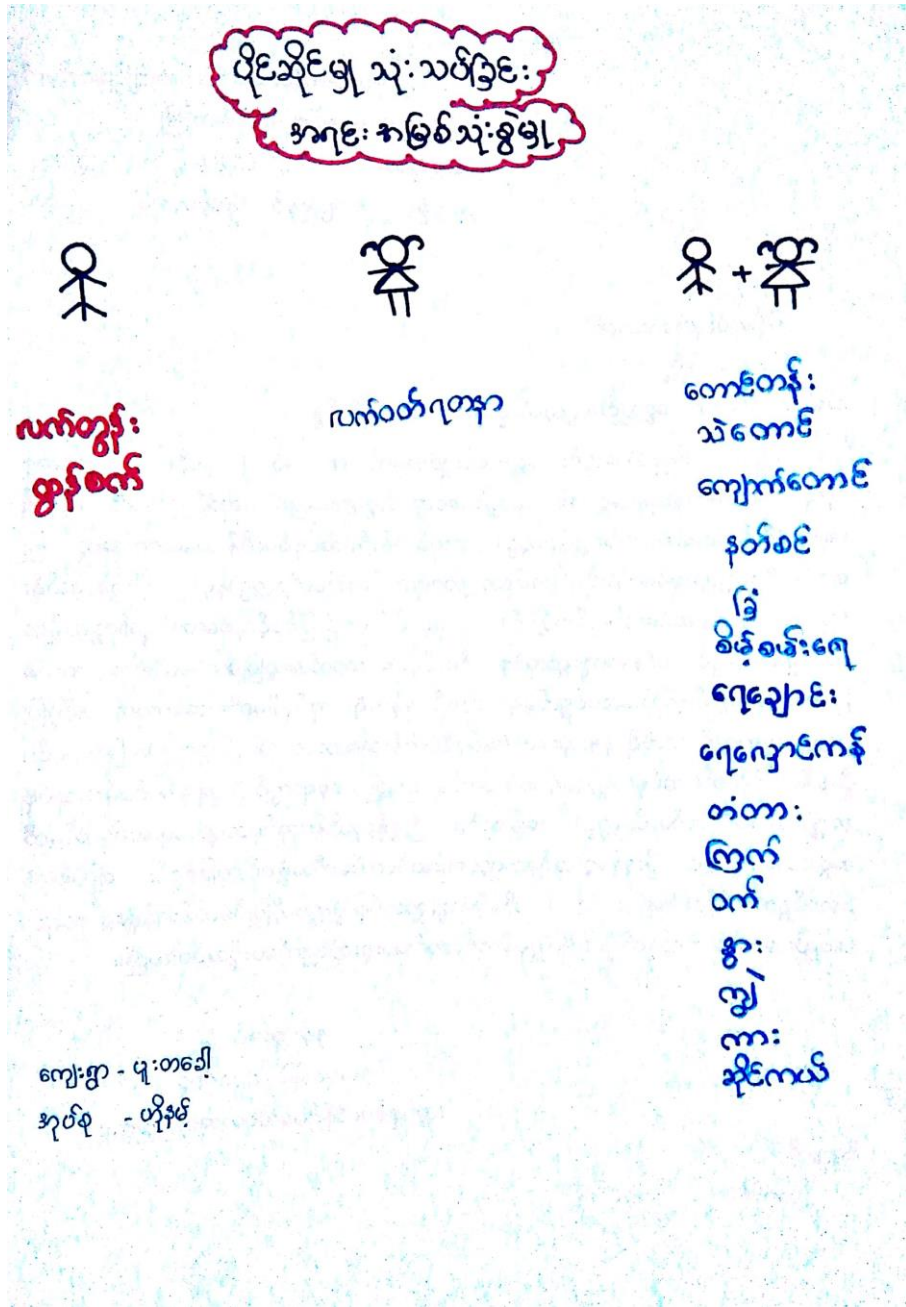 ပိုင်ဆိုင်မှု သုံးသပ်ခြင်း
အရင်းအမြစ်သုံးစွဲမှု
+
လက်တွန်း
ထွန်စက်
လက်ဝတ်ရတနာ
တောင်တန်း
သဲတောင်
ကျောက်တောင်
နတ်စင်
ခြံ
စိမ့်စမ်းရေ
ရေချောင်း
ရေလှောင်ကန်
တံတား
ကြက်
ဝက်
နွား
ကျွဲ
ကား
ဆိုင်ကယ်
ကျေးရွာ - ပူးတခေါ့
အုပ်စု - ဟိုနမ့်